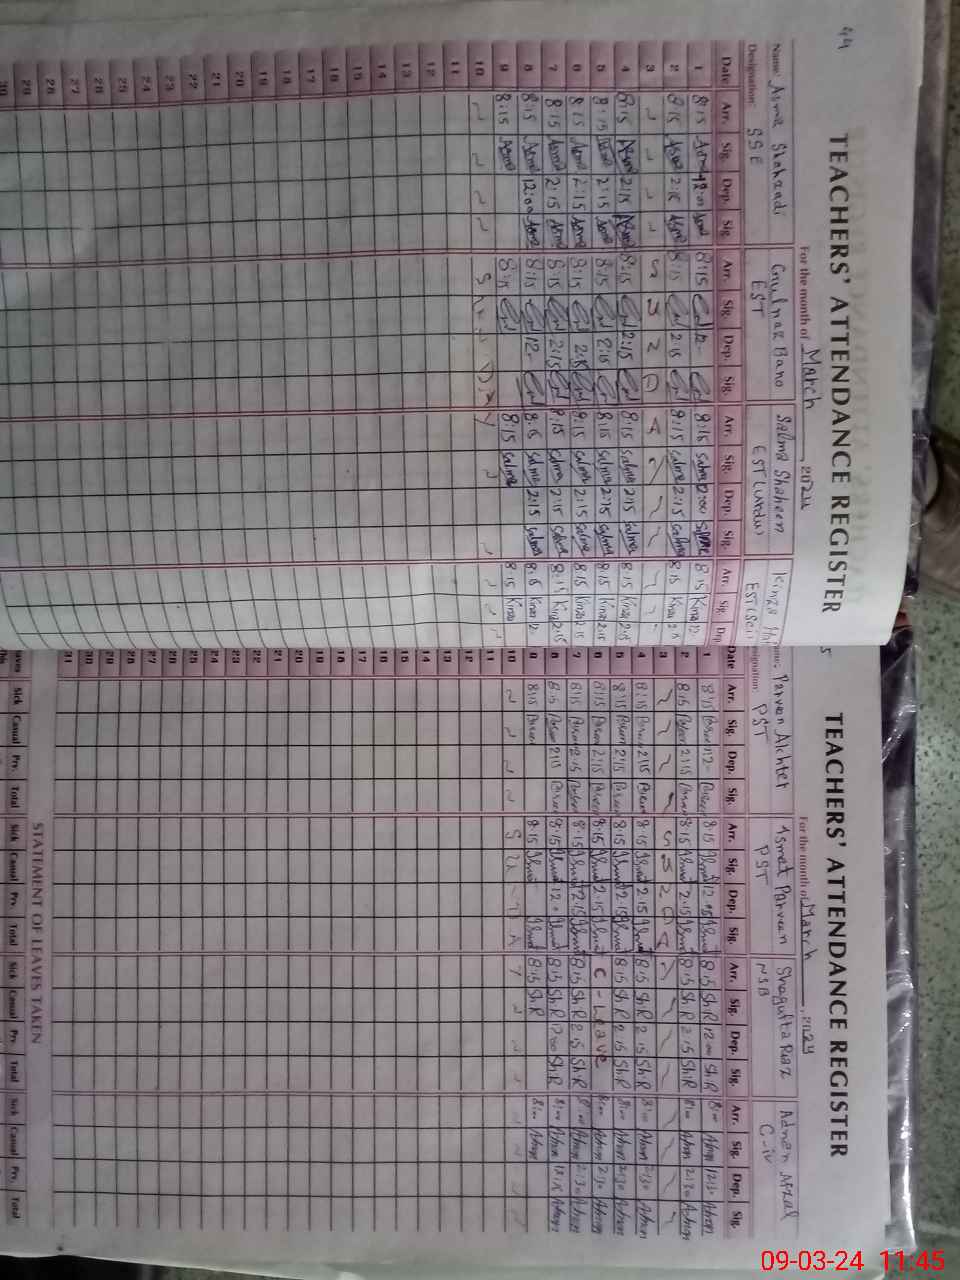 44
TEACHERS' ATTENDANCE REGISTER
For the month of March, 2024
Name: Asma Shahzadi Gulnaz Bano Salma Shaheen Kinza
Designation: SSE EST EST (Urdu) EST (Sci)
Date Arr. Sig. Dep. Sig. Arr. Sig. Dep. Sig. Arr. Sig. Dep. Sig. Arr. Sig. Dep.
1 8:15 Asma 12:00 Asma 8:15 12- 8:15 Salma 2:00 Salma 8:15 Kinza 12-
2 8:15 Asma 2:15 Asma 8:15 2:15 8:15 Salma 2:15 Salma 8:15 Kinza 2:15
3 S U N D A Y
4 8:15 Asma 2:15 Asma 8:15 2:15 8:15 Salma 2:15 Salma 8:15 Kinza 2:15
5 8:15 Asma 2:15 Asma 8:15 2:15 8:15 Salma 2:15 Salma 8:15 Kinza 2:15
6 8:15 Asma 2:15 Asma 8:15 2:15 8:15 Salma 2:15 Salma 8:15 Kinza 2:15
7 8:15 Asma 2:15 Asma 8:15 2:15 8:15 Salma 2:15 Salma 8:15 Kinza 2:15
8 8:15 Asma 12:00 Asma 8:15 12- 8:15 Salma 2:15 Salma 8:15 Kinza 12-
9 8:15 Asma 8:15 8:15 Salma 8:15 Kinza
10 S U N D A Y
11
12
13
14
15
16
17
18
19
20
21
22
23
24
25
26
27
28
29
30
TEACHERS' ATTENDANCE REGISTER
For the month of March, 2024
Parveen Akhter Asmat Parveen Shagufta Riaz Adnan Afzal
Designation: PST PST NSB C-iv
Date Arr. Sig. Dep. Sig. Arr. Sig. Dep. Sig. Arr. Sig. Dep. Sig. Arr. Sig. Dep. Sig.
1 8:15 Parveen 12- Parveen 8:15 Asmat 12:00 Asmat 8:15 Sh.R 12:00 Sh.R 8:00 Adnan 12:30 Adnan
2 8:15 Parveen 2:15 Parveen 8:15 Asmat 2:15 Asmat 8:15 Sh.R 2:15 Sh.R 8:00 Adnan 2:30 Adnan
3 S U N D A Y
4 8:15 Parveen 2:15 Parveen 8:15 Asmat 2:15 Asmat 8:15 Sh.R 2:15 Sh.R 8:00 Adnan 2:30 Adnan
5 8:15 Parveen 2:15 Parveen 8:15 Asmat 2:15 Asmat 8:15 Sh.R 2:15 Sh.R 8:00 Adnan 2:30 Adnan
6 8:15 Parveen 2:15 Parveen 8:15 Asmat 2:15 Asmat C - Leave 8:00 Adnan 2:30 Adnan
7 8:15 Parveen 2:15 Parveen 8:15 Asmat 2:15 Asmat 8:15 Sh.R 2:15 Sh.R 8:00 Adnan 2:30 Adnan
8 8:15 Parveen 2:15 Parveen 8:15 Asmat 12:0 Asmat 8:15 Sh.R 12:00 Sh.R 8:00 Adnan 12:15 Adnan
9 8:15 Parveen 8:15 Asmat 8:15 Sh.R 8:00 Adnan
10 S U N D A Y
11
12
13
14
15
16
17
18
19
20
21
22
23
24
25
26
27
28
29
30
31
STATEMENT OF LEAVES TAKEN
Sick Casual Prv. Total Sick Casual Prv. Total Sick Casual Prv. Total Sick Casual Prv. Total
09-03-24 11:45